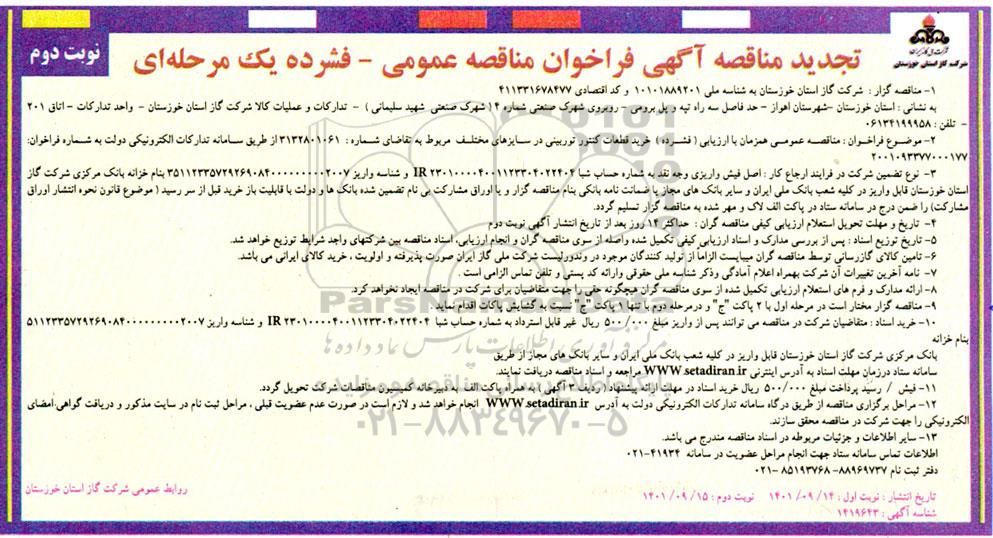 شرکت ملی گاز ایران
شرکت گاز استان خوزستان
تجدید مناقصه آگهی فراخوان مناقصه عمومی - فشرده یک مرحله‌ای
نوبت دوم
۱- مناقصه گزار : شرکت گاز استان خوزستان به شناسه ملی ۱۰۱۰۱۸۸۹۲۰۱ و کد اقتصادی ۴۱۱۳۳۱۶۷۸۴۷۷
به نشانی : استان خوزستان -شهرستان اهواز - حد فاصل سه راه تپه و پل برومی - روبروی شهرک صنعتی شماره ۴ ( شهرک صنعتی شهید سلیمانی ) - تدارکات و عملیات کالا شرکت گاز استان خوزستان - واحد تدارکات - اتاق ۲۰۱
- تلفن : ۰۶۱۳۴۱۹۹۹۵۸
۲- موضوع فراخوان : مناقصه عمومی همزمان با ارزیابی ( فشرده ) خرید قطعات کنتور توربینی در سایزهای مختلف مربوط به تقاضای شماره : ۳۱۳۲۸۰۱۰۶۱ از طریق سامانه تدارکات الکترونیکی دولت به شماره فراخوان:
۲۰۰۱۰۹۳۳۷۷۰۰۰۱۷۷
۳- نوع تضمین شرکت در فرایند ارجاع کار : اصل فیش واریزی وجه نقد به شماره حساب شبا IR ۲۳۰۱۰۰۰۰۴۰۰۱۱۲۳۳۰۴۰۲۲۴۰۴ و شناسه واریز ۳۵۱۱۲۳۳۵۷۲۹۲۶۹۰۸۴۰۰۰۰۰۰۰۰۰۲۰۰۷ بنام خزانه بانک مرکزی شرکت گاز
استان خوزستان قابل واریز در کلیه شعب بانک ملی ایران و سایر بانک های مجاز یا ضمانت نامه بانکی بنام مناقصه گزار و یا اوراق مشارکت بی نام تضمین شده بانک ها و دولت با قابلیت باز خرید قبل از سر رسید ( موضوع قانون نحوه انتشار اوراق
مشارکت) را ضمن درج در سامانه ستاد در پاکت الف لاک و مهر شده به مناقصه گزار تسلیم گردد.
۴- تاریخ و مهلت تحویل استعلام ارزیابی کیفی مناقصه گران : حداکثر ۱۴ روز بعد از تاریخ انتشار آگهی نوبت دوم
۵- تاریخ توزیع اسناد : پس از بررسی مدارک و اسناد ارزیابی کیفی تکمیل شده واصله از سوی مناقصه گران و انجام ارزیابی، اسناد مناقصه بین شرکتهای واجد شرایط توزیع خواهد شد.
۶- تامین کالای گازرسانی توسط مناقصه گران میبایست الزاما از تولید کنندگان موجود در وندورلیست شرکت ملی گاز ایران صورت پذیرفته و اولویت ، خرید کالای ایرانی می باشد.
۷- نامه آخرین تغییرات آن شرکت بهمراه اعلام آمادگی وذکر شناسه ملی حقوقی وارائه کد پستی و تلفن تماس الزامی است .
۸- ارائه مدارک و فرم های استعلام ارزیابی تکمیل شده از سوی مناقصه گران هیچگونه حقی را جهت متقاضیان برای شرکت در مناقصه ایجاد نخواهد کرد.
۹- مناقصه گزار مختار است در مرحله اول با ۲ پاکت "ج" و در مرحله دوم با تنها ۱ پاکت "ج" نسبت به گشایش پاکات اقدام نماید .
۱۰- خرید اسناد : متقاضیان شرکت در مناقصه می توانند پس از واریز مبلغ ۵۰۰/۰۰۰ ریال غیر قابل استرداد به شماره حساب شبا IR ۲۳۰۱۰۰۰۰۴۰۰۱۱۲۳۳۰۴۰۲۲۴۰۴ و شناسه واریز ۵۱۱۲۳۳۵۷۲۹۲۶۹۰۸۴۰۰۰۰۰۰۰۰۰۲۰۰۷
بنام خزانه
بانک مرکزی شرکت گاز استان خوزستان قابل واریز در کلیه شعب بانک ملی ایران و سایر بانک های مجاز از طریق
سامانه ستاد درزمان مهلت اسناد به آدرس اینترنی WWW.setadiran.ir مراجعه و اسناد مناقصه دریافت نمایند.
۱۱- فیش / رسید پرداخت مبلغ ۵۰۰/۰۰۰ ریال خرید اسناد در مهلت ارائه پیشنهاد ( ردیف ۳ آگهی ) به همراه پاکت الف به دبیرخانه کمیسیون مناقصات شرکت تحویل گردد.
۱۲- مراحل برگزاری مناقصه از طریق درگاه سامانه تدارکات الکترونیکی دولت به آدرس WWW.setadiran.ir انجام خواهد شد و لازم است در صورت عدم عضویت قبلی ، مراحل ثبت نام در سایت مذکور و دریافت گواهی امضای
الکترونیکی را جهت شرکت در مناقصه محقق سازند.
۱۳- سایر اطلاعات و جزئیات مربوطه در اسناد مناقصه مندرج می باشد.
اطلاعات تماس سامانه ستاد جهت انجام مراحل عضویت در سامانه ۴۱۹۳۴-۰۲۱
دفتر ثبت نام ۸۸۹۶۹۷۳۷- ۸۵۱۹۳۷۶۸ -۰۲۱
تاریخ انتشار : نوبت اول : ۱۴ /۰۹ /۱۴۰۱ نوبت دوم : ۱۵ /۰۹ /۱۴۰۱
شناسه آگهی : ۱۴۱۹۶۴۳
روابط عمومی شرکت گاز استان خوزستان
ParsNamadData
مرکز فرآوری اطلاعات پارس نماد داده ها
۰۲۱-۸۸۳۴۹۶۷۰-۵